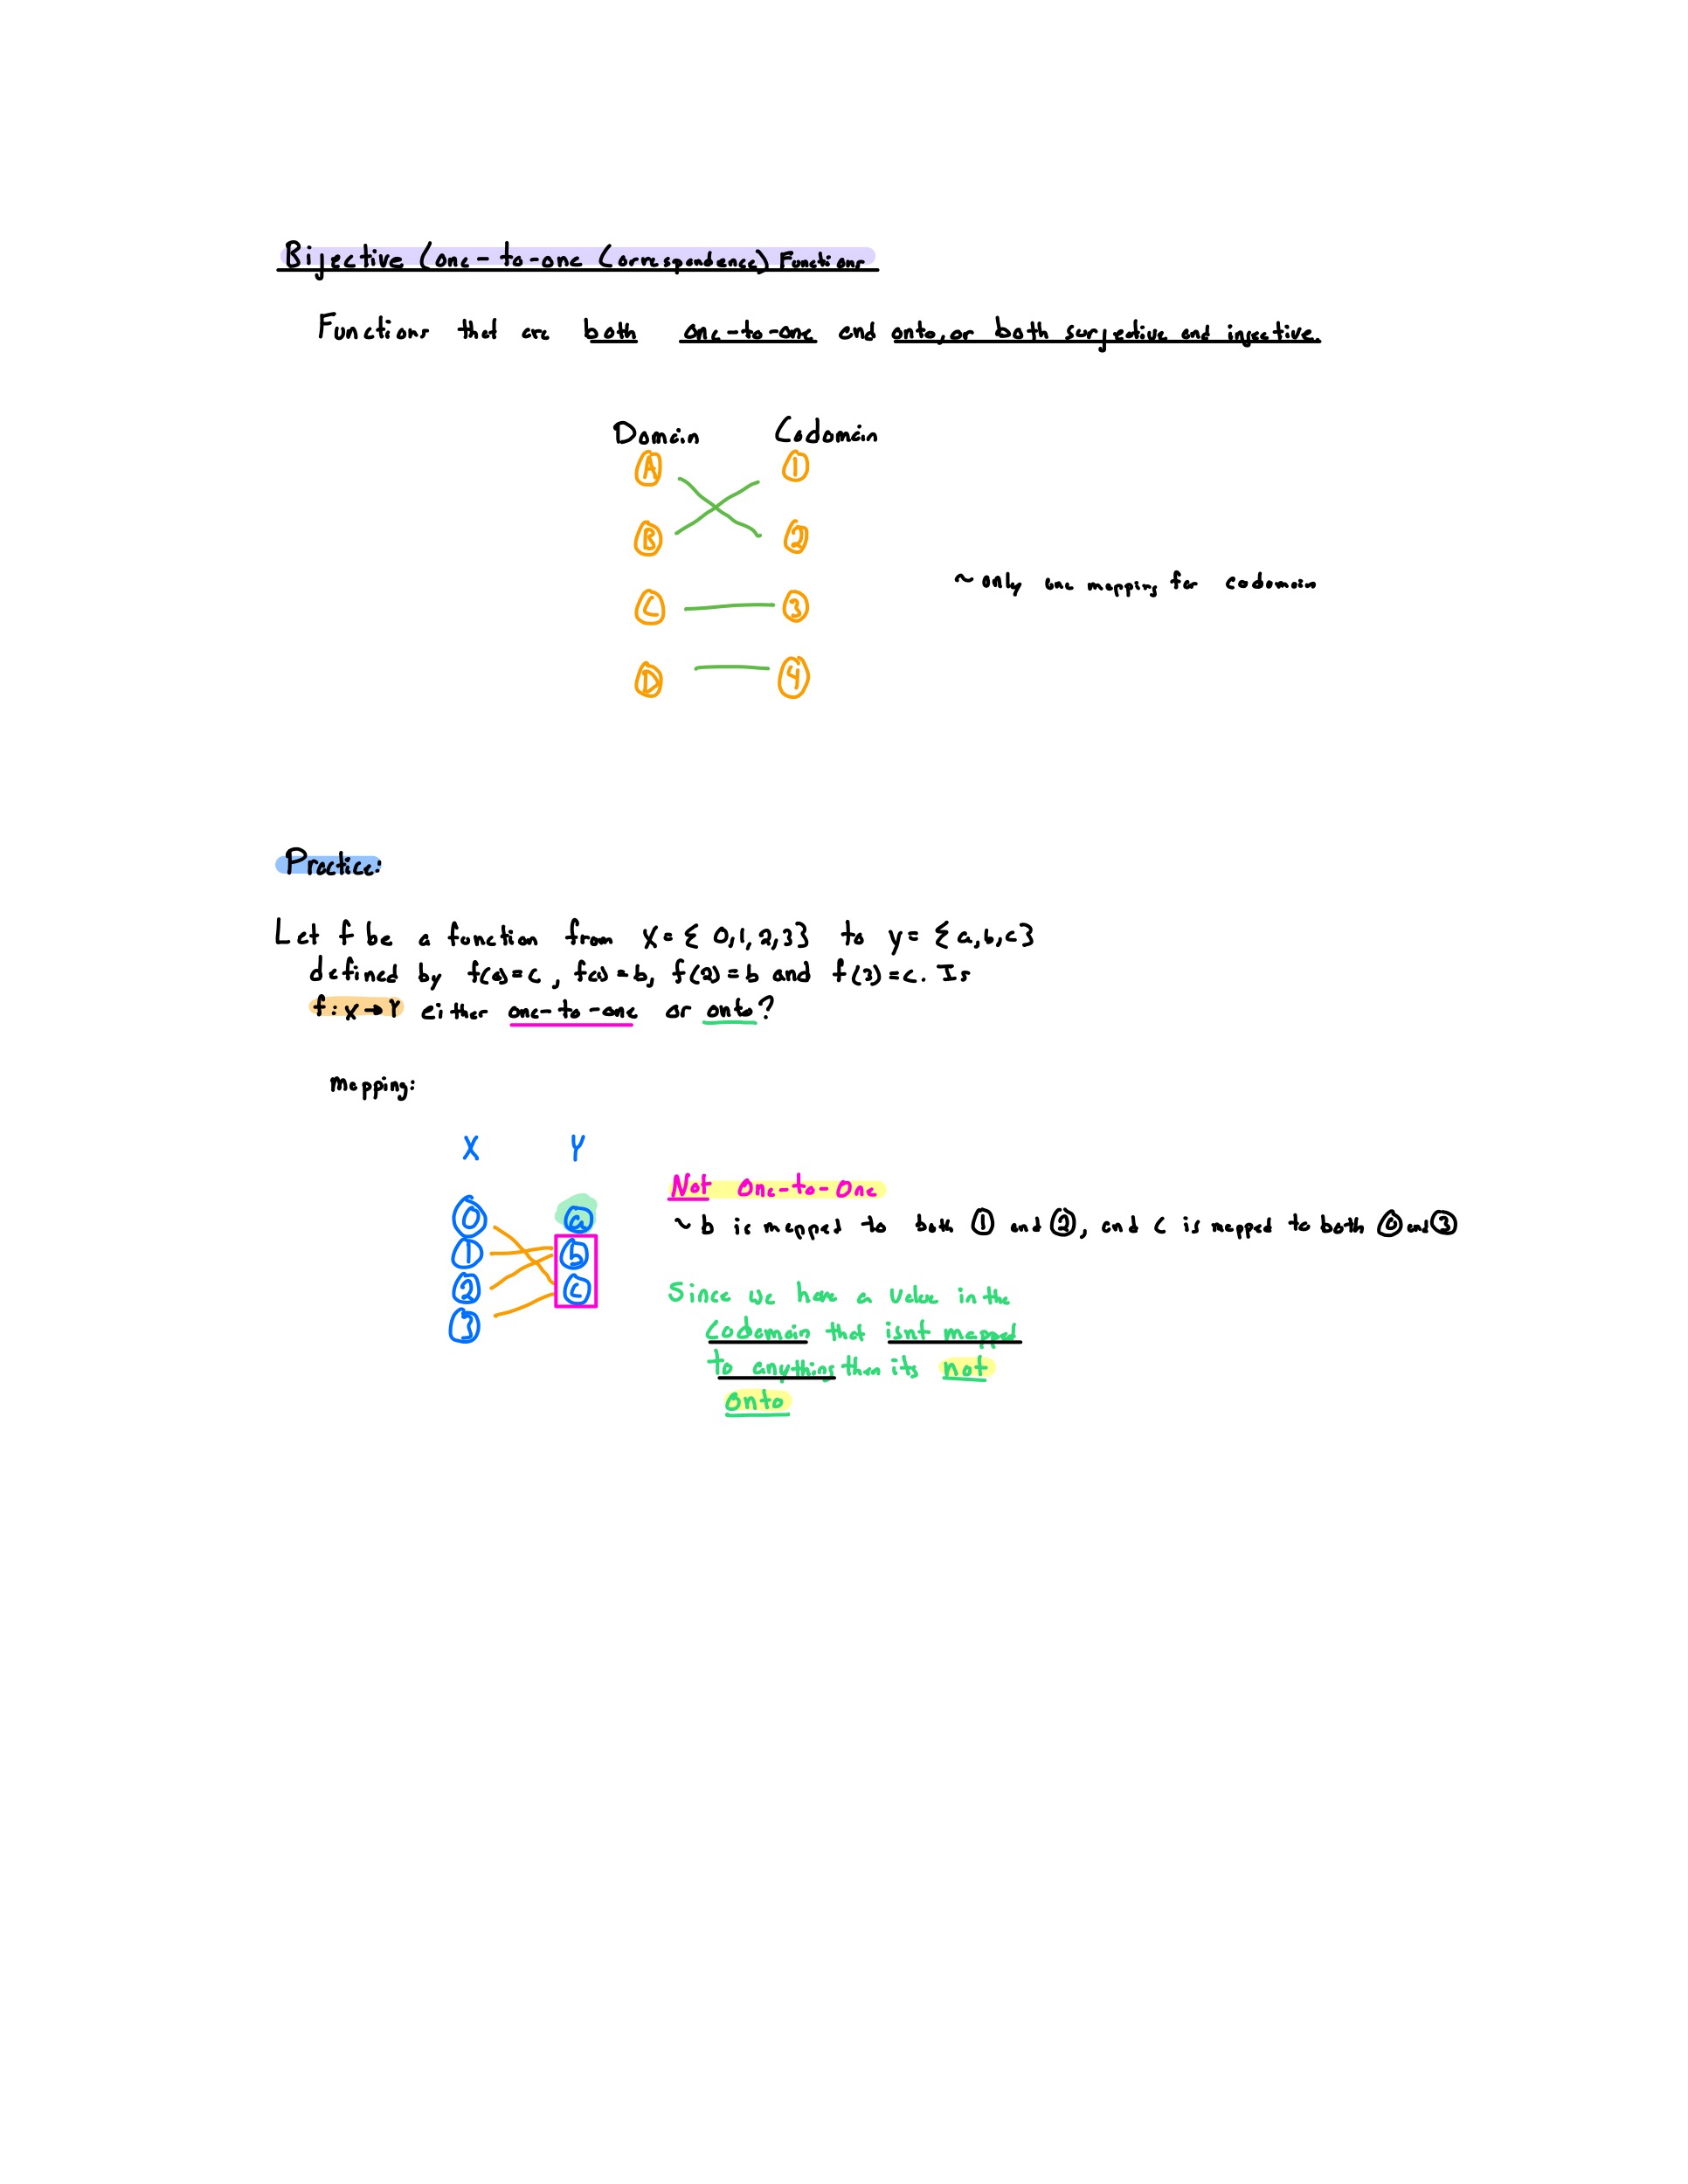 Bijective (one-to-one Correspondence) Functions
Functions that are both one-to-one and onto, or both surjective and injective.
Domain Codomain
A 1
B 2
~ only one mapping for codomain
C 3
D 4
Practice:
Let f be a function from X = { 0,1,2,3} to y = { a,b,c}
defined by f(0)=c , f(1)=b, f(2)=b and f(3)=c. Is
f: X→Y either one-to-one or onto?
Mapping:
X Y
Not One-to-One
0 a
~ b is mapped to both 1 and 2, and c is mapped to both 0 and 3
1 b
2 c
Since we have a value in the
3
Codomain that isnt mapped
to anything then its not
onto